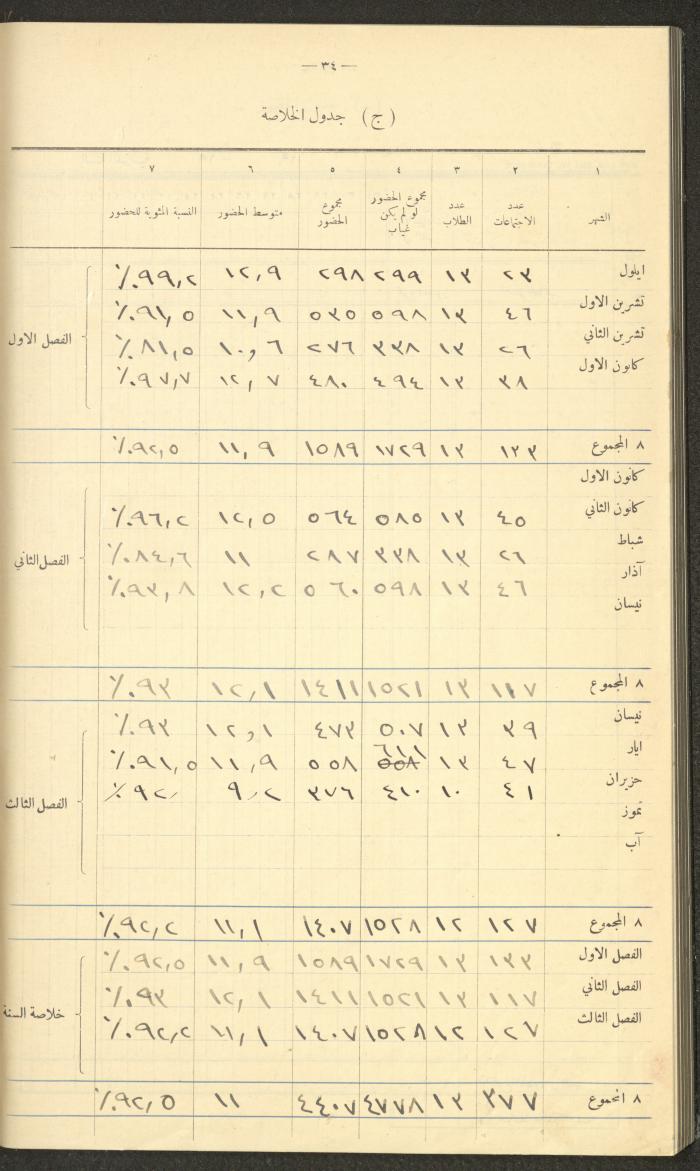 — ٣٤ —
(ج) جدول الخلاصة
١ ٢ ٣ ٤ ٥ ٦ ٧
الشهر عدد الاجتماعات عدد الطلاب مجموع الحضور لو لم يكن غياب مجموع الحضور متوسط الحضور النسبة المئوية للحضور
ايلول ٢٣ ١٣ ٢٩٩ ٢٩٨ ١٢,٩ ٩٩,٢٪
تشرين الاول ٤٦ ١٣ ٥٩٨ ٥٣٥ ١١,٩ ٩١,٥٪
تشرين الثاني ٢٦ ١٣ ٣٣٨ ٢٧٦ ١٠,٦ ٨١,٥٪
الفصل الاول
كانون الاول ٣٨ ١٣ ٤٩٤ ٤٨٠ ١٢,٧ ٩٧,٧٪
٨ المجموع ١٣٣ ١٣ ١٧٢٩ ١٥٨٩ ١١,٩ ٩٢,٥٪
كانون الاول
كانون الثاني ٤٥ ١٣ ٥٨٥ ٥٦٤ ١٢,٥ ٩٦,٢٪
شباط ٢٦ ١٣ ٣٣٨ ٢٨٧ ١١ ٨٤,٦٪
الفصل الثاني
آذار ٤٦ ١٣ ٥٩٨ ٥٦٠ ١٢,٢ ٩٣,٨٪
نيسان
٨ المجموع ١١٧ ١٣ ١٥٢١ ١٤١١ ١٢,١ ٩٣٪
نيسان ٣٩ ١٣ ٥٠٧ ٤٧٣ ١٢,١ ٩٣٪
ايار ٤٧ ١٣ ٦١١ ٥٥٨ ٥٥٨ ١١,٩ ٩١,٥٪
حزيران ٤١ ١٠ ٤١٠ ٣٧٦ ٩,٢ ٩٢٪
الفصل الثالث
تموز
آب
٨ المجموع ١٢٧ ١٢ ١٥٢٨ ١٤٠٧ ١١,١ ٩٢,٢٪
الفصل الاول ١٣٣ ١٣ ١٧٢٩ ١٥٨٩ ١١,٩ ٩٢,٥٪
الفصل الثاني ١١٧ ١٣ ١٥٢١ ١٤١١ ١٢,١ ٩٣٪
خلاصة السنة
الفصل الثالث ١٢٧ ١٢ ١٥٢٨ ١٤٠٧ ١١,١ ٩٢,٢٪
٨ المجموع ٣٧٧ ١٣ ٤٧٧٨ ٤٤٠٧ ١١ ٩٢,٥٪